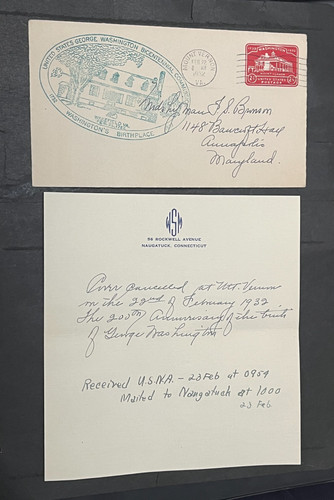 UNITED STATES GEORGE WASHINGTON BICENTENNIAL COMMISSION
WASHINGTON'S BIRTHPLACE
WAKEFIELD, VA.
MOUNT VERNON
FEB 22
1932
VA.
Annapolis
Maryland.
WSM
56 ROCKWELL AVENUE
NAUGATUCK, CONNECTICUT
Cover canceled at Mt. Vernon
on the 22nd of February 1932
The 200th Anniversary of the birth
of George Washington
Received U.S.N.A. - 23 Feb at 0959
Mailed to Naugatuck at 1000
23 Feb